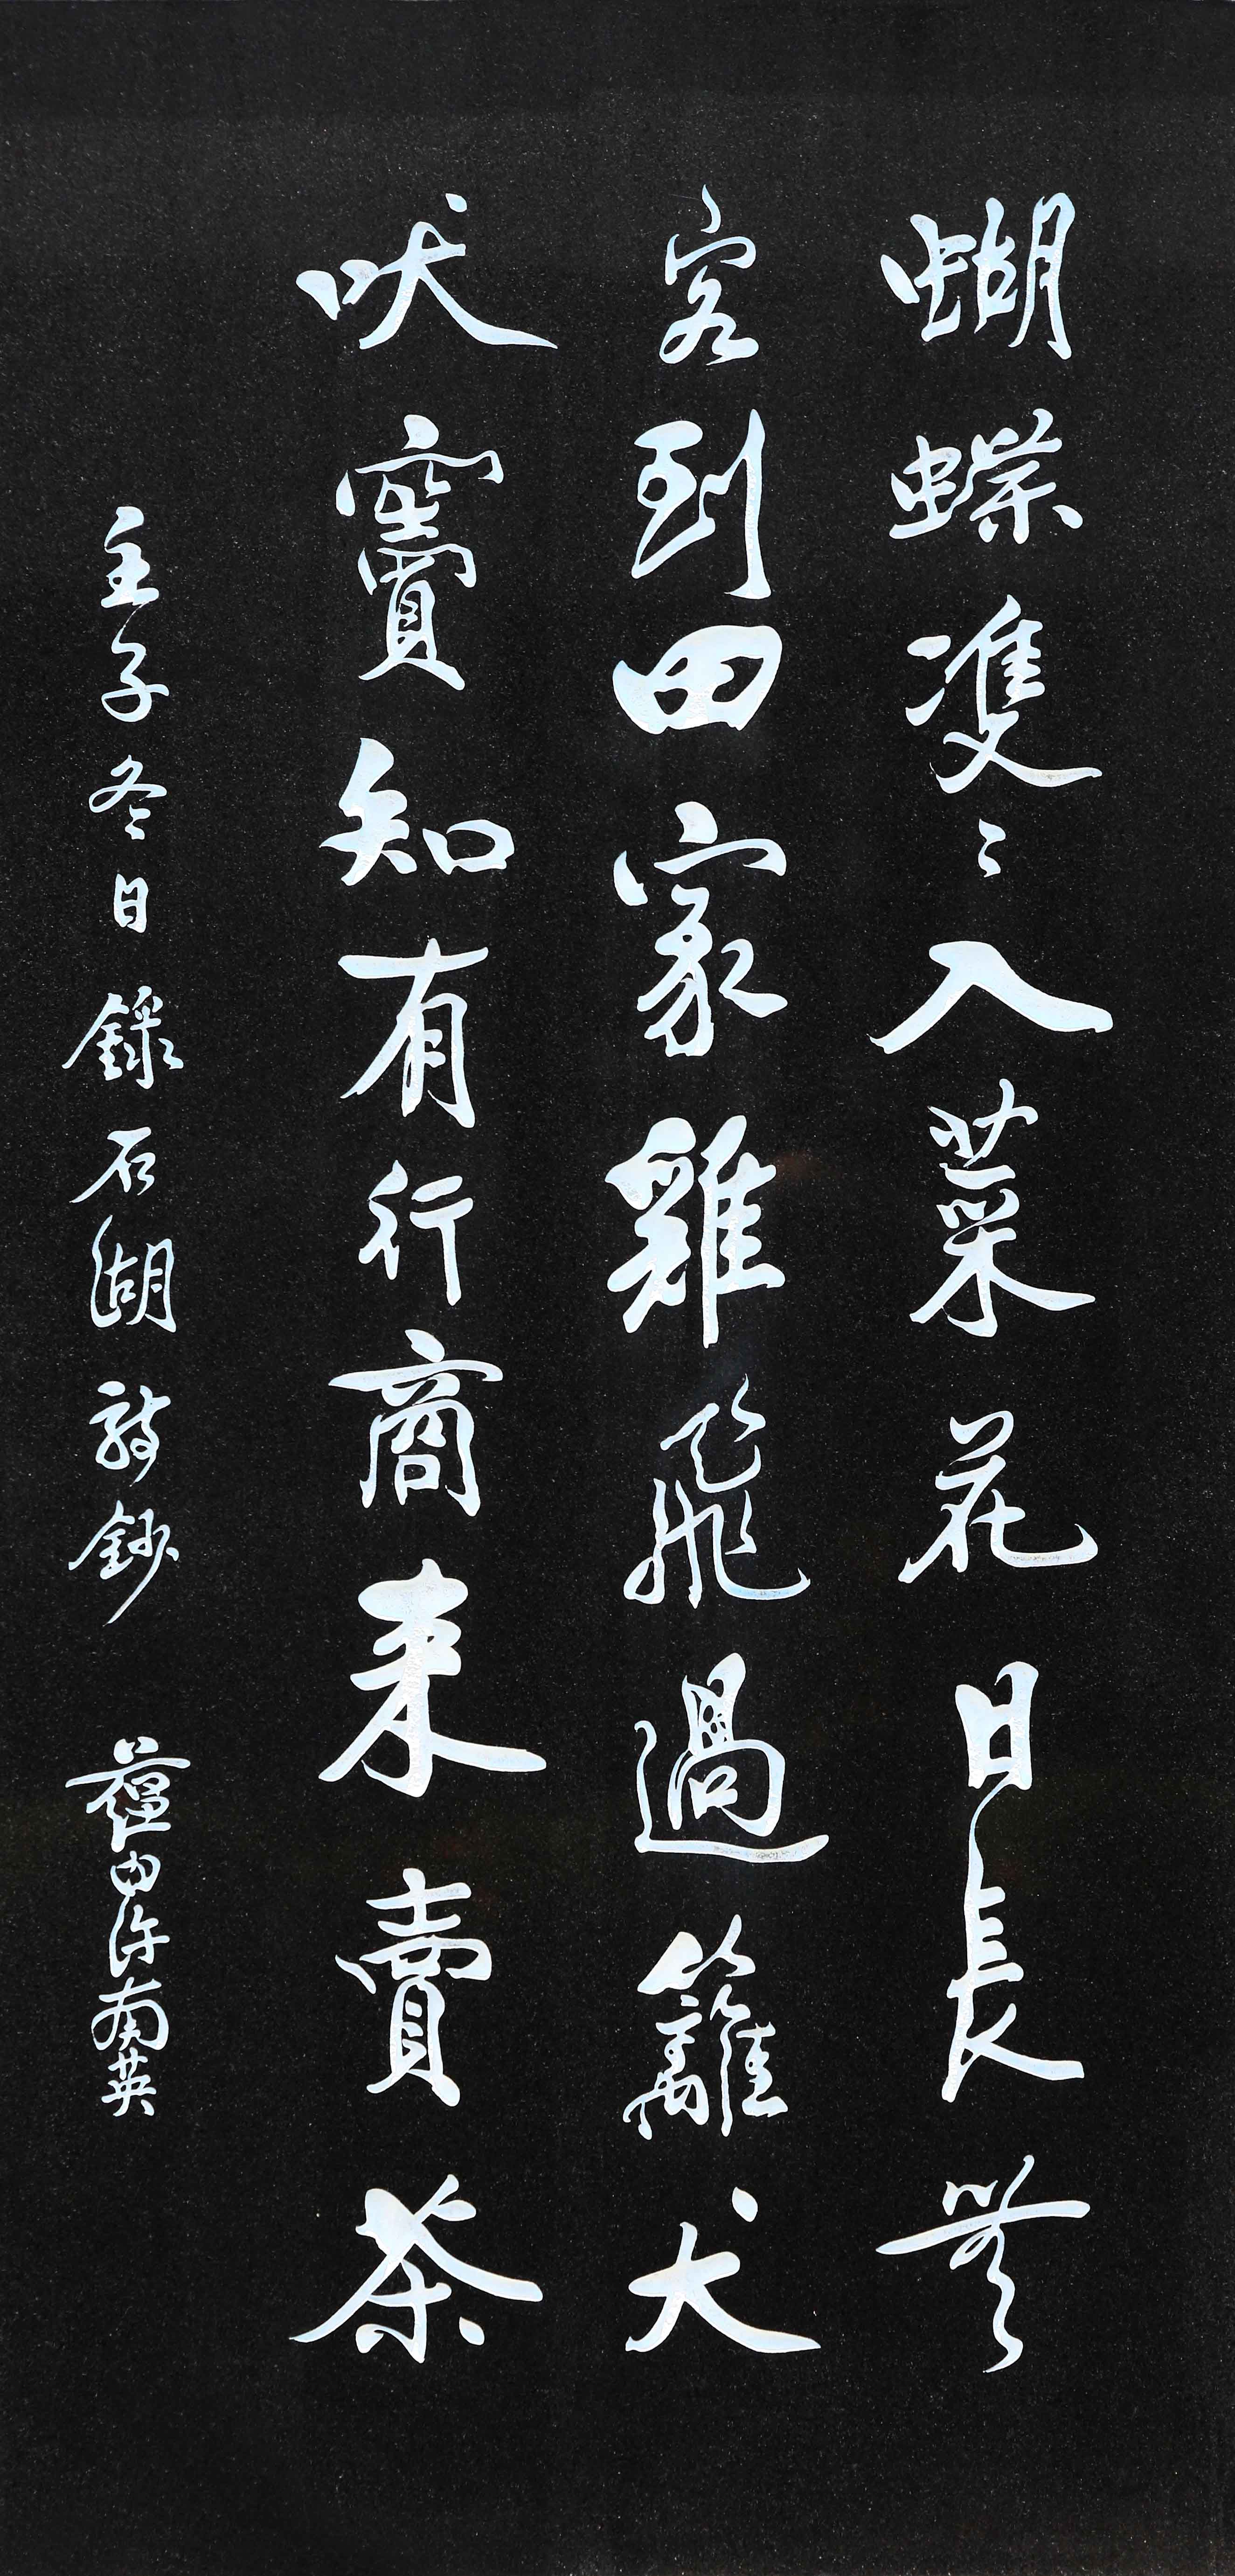 蝴蝶雙〻入菜花日長無
客到田家雞飛過籬犬
吠竇知有行商来賣茶
壬子冬日錄石湖詩鈔
蘊白許南英